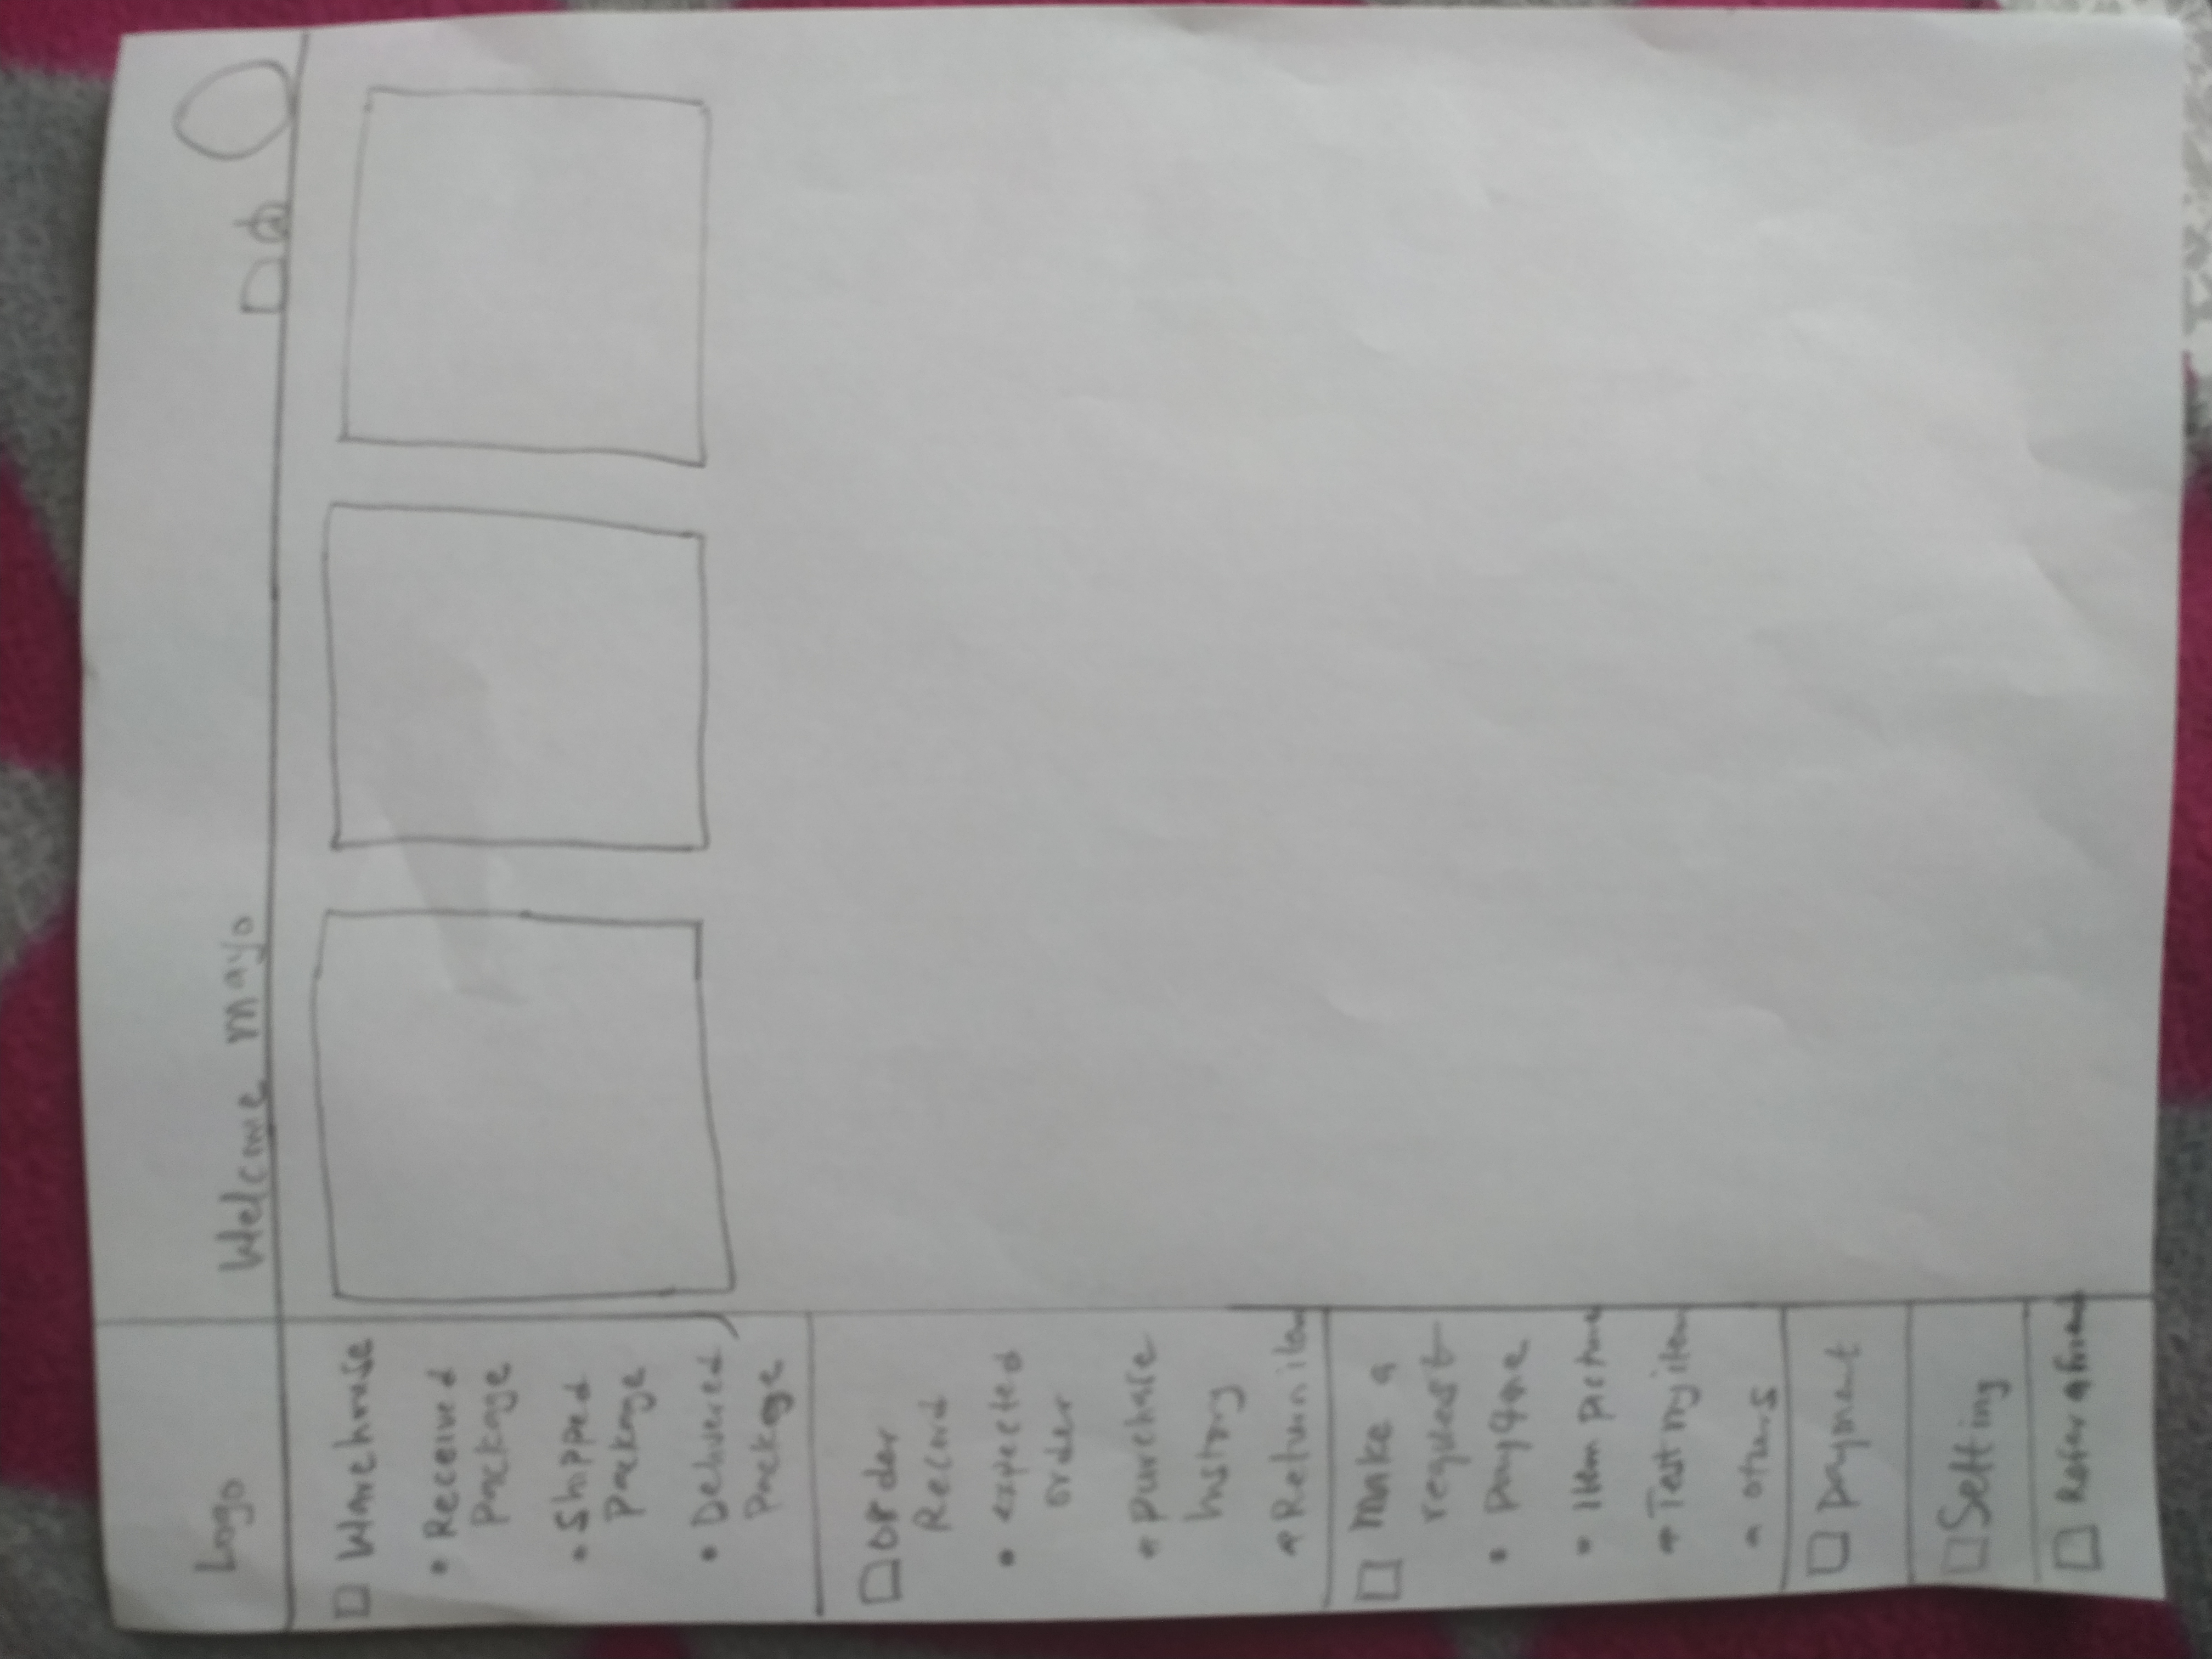 Logo
Welcome mayo
Warehouse
• Received
Package
• Shipped
Package
• Delivered
Package
Order
Record
• expected
order
• purchase
history
• Return item
make a
request
• pay4me
• Item picture
• Test my item
• others
payment
Setting
Refer a friend